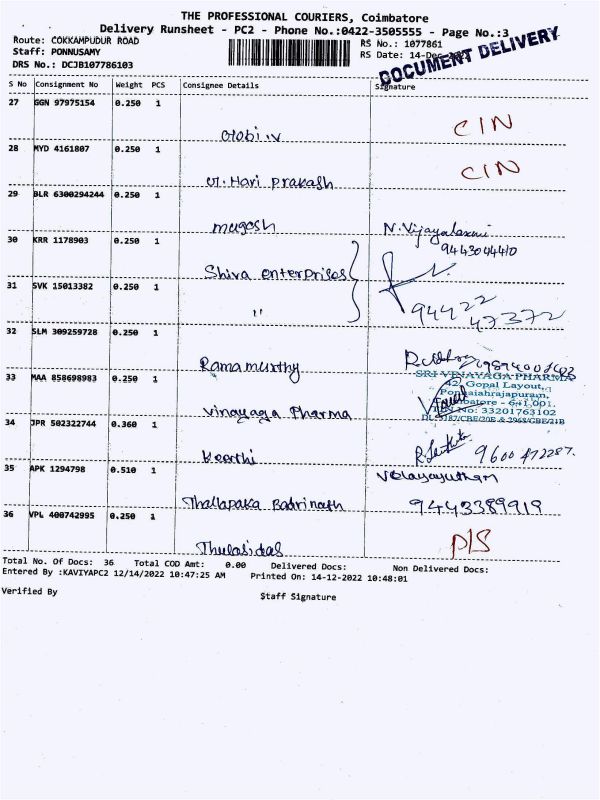 THE PROFESSIONAL COURIERS, Coimbatore
Delivery Runsheet - PC2 - Phone No.:0422-3505555 - Page No.:3
Route: COKKAMPUDUR ROAD
RS No.: 1077861
Staff: PONNUSAMY
RS Date: 14-Dec
DOCUMENT DELIVERY
DRS No.: DCJB107786103
S No Consignment No Weight PCS Consignee Details Signature
27 GGN 97975154 0.250 1
CIN
28 MYD 4161807 0.250 1
CIN
Hari Prakash
29 BLR 6300294244 0.250 1
mugesh N. Vijayalaxmi
9443044410
30 KRR 1178903 0.250 1
Shiva enterprises
31 SVK 15013382 0.250 1
"
94422
47372
32 SLM 309259728 0.250 1
Ramamurthy
SRI VINAYAGA PHARMA
33 MAA 858698983 0.250 1
42, Gopal Layout,
Ponnaiahrajapuram,
Coimbatore - 641 001.
Vinayaga Pharma
No: 33201763102
34 JPR 502322744 0.360 1
Keerthi
9600472287.
35 APK 1294798 0.510 1
Velayayutham
Thallapaka Badrinath 9443389919
36 VPL 400742995 0.250 1
Thulasidas
D/S
Total No. Of Docs: 36 Total COD Amt: 0.00 Delivered Docs: Non Delivered Docs:
Entered By :KAVIYAPC2 12/14/2022 10:47:25 AM Printed On: 14-12-2022 10:48:01
Verified By
Staff Signature